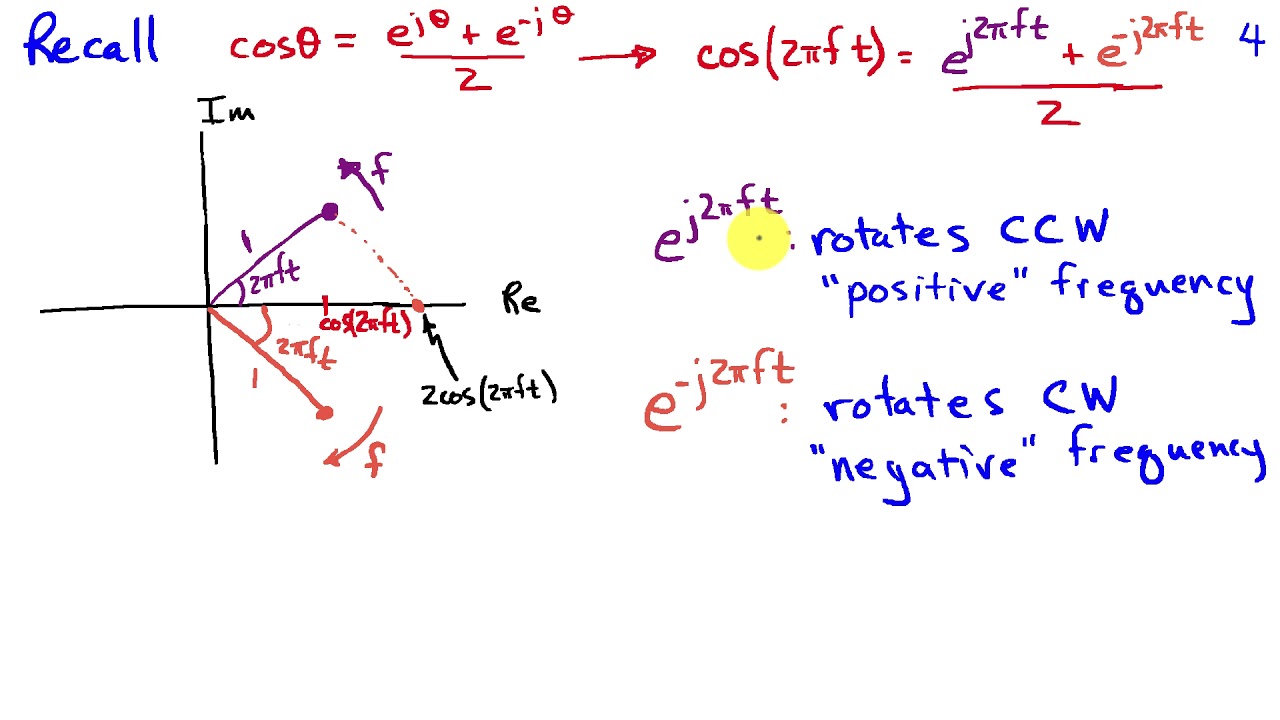 Recall cosθ = e^{jθ} + e^{-jθ} / 2 → cos(2πft) = e^{j2πft} + e^{-j2πft} / 2 4
Im
f
1
2πft
Re
cos(2πft)
2πft
1
2cos(2πft)
f
e^{j2πft} : rotates CCW
"positive" frequency
e^{-j2πft} : rotates CW
"negative" frequency